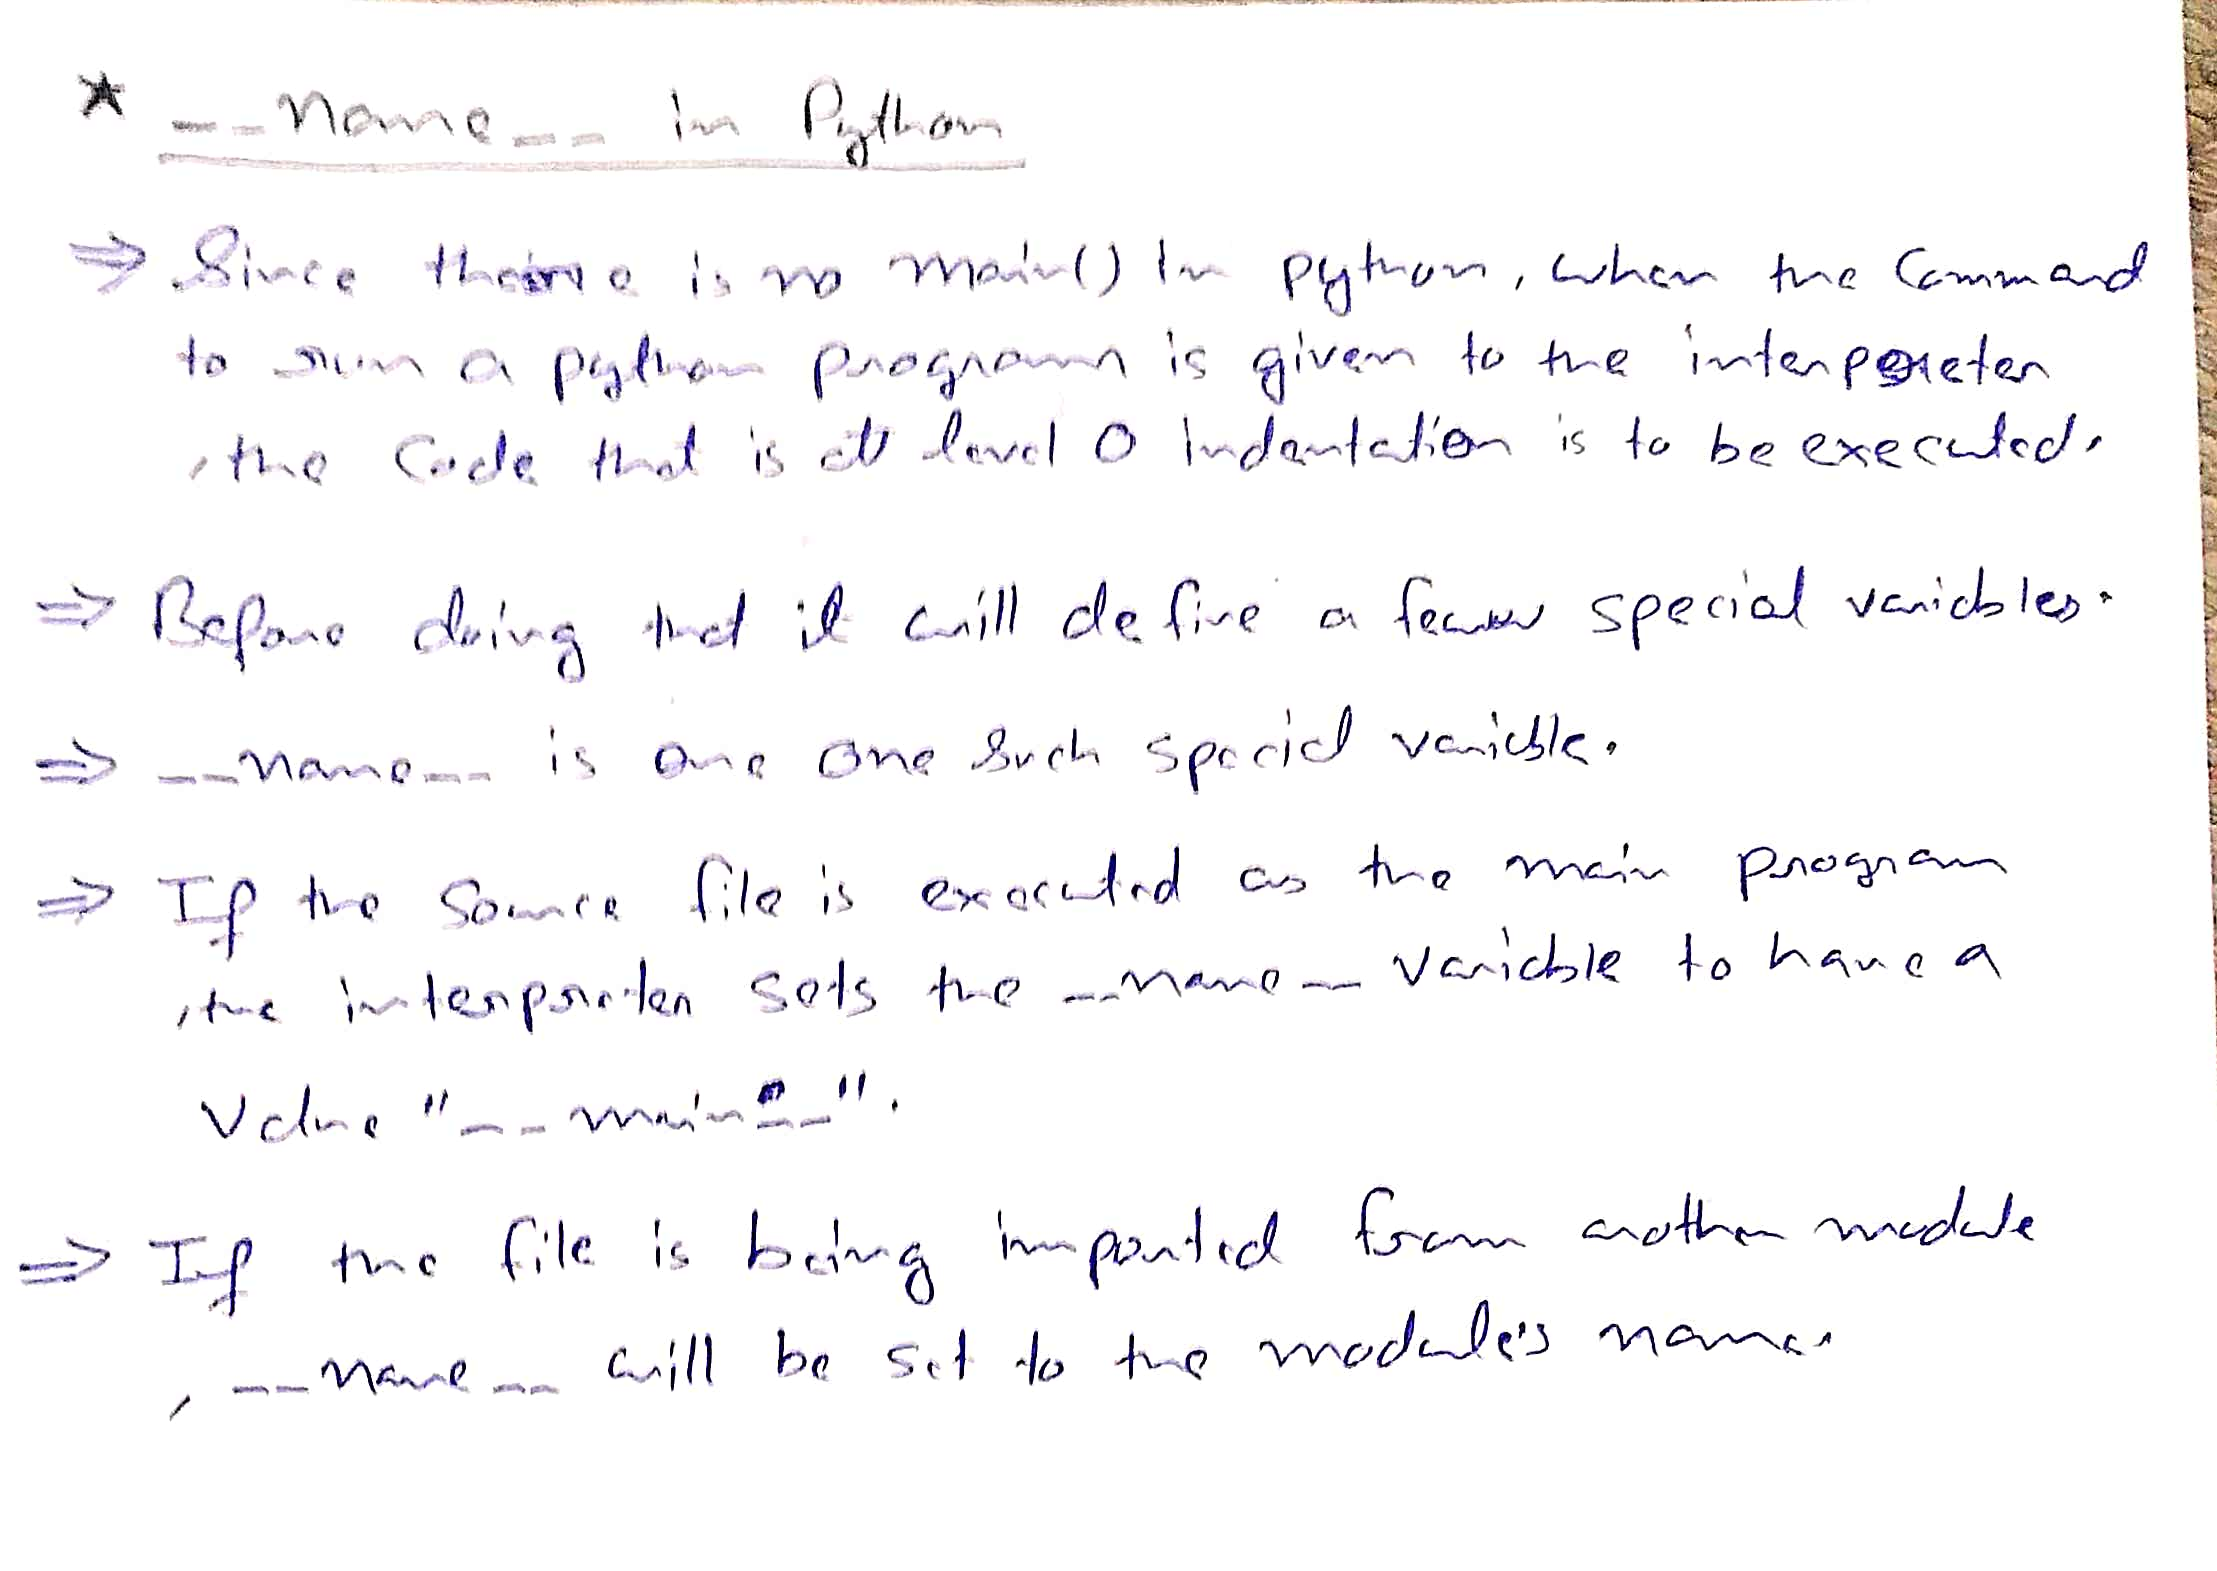 * __name__ in Python
⇒ Since there is no main() In python, when the Command
to run a python program is given to the interpreter
, the Code that is at level 0 Indentation is to be executed.
⇒ Before doing that it will define a few special variables.
⇒ __name__ is one one such special variable.
⇒ If the source file is executed as the main program
, the interpreter sets the __name__ variable to have a
value "__main__".
⇒ If the file is being imported from another module
, __name__ will be set to the module's name.